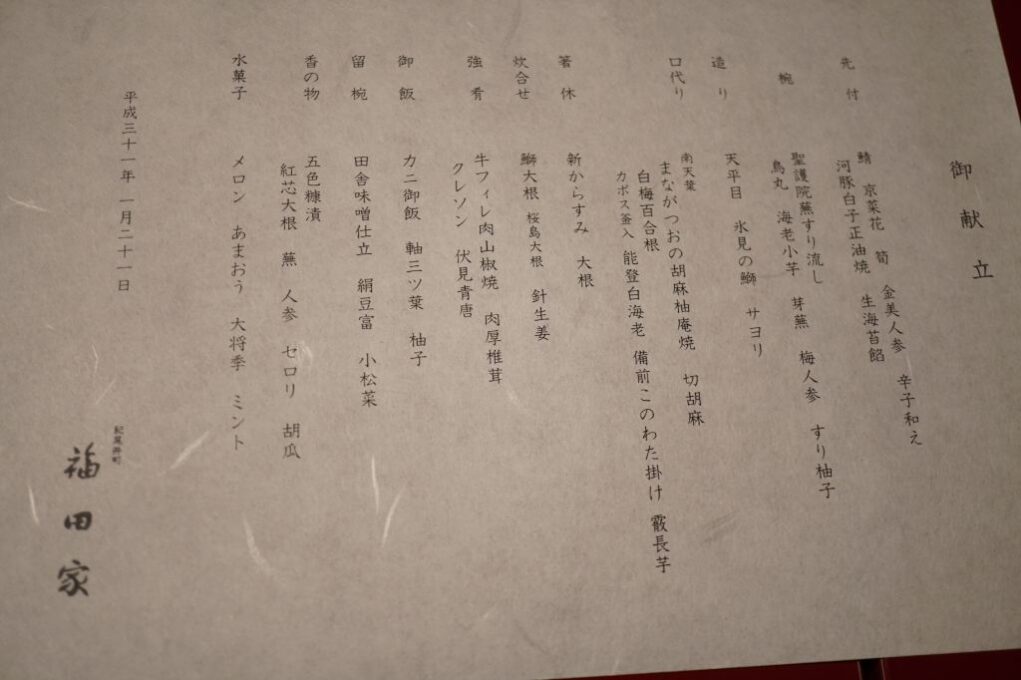 御献立
先付 鯖 京菜花 筍 金美人参 辛子和え
河豚白子正油焼 生海苔餡
椀 聖護院蕪すり流し
鳥丸 海老小芋 芽蕪 梅人参 すり柚子
造り 天平目 氷見の鰤 サヨリ
口代り 南天葉
まながつおの胡麻柚庵焼 切胡麻
白梅百合根
カボス釜入 能登白海老 備前このわた掛け 霰長芋
箸休 新からすみ 大根
炊合せ 鰤大根 桜島大根 針生姜
強肴 牛フィレ肉山椒焼 肉厚椎茸
クレソン 伏見青唐
御飯 カニ御飯 軸三ツ葉 柚子
留椀 田舎味噌仕立 絹豆富 小松菜
香の物 五色糠漬
紅芯大根 蕪 人参 セロリ 胡瓜
水菓子 メロン あまおう 大将季 ミント
平成三十一年 一月二十一日
紀尾井町
福田家